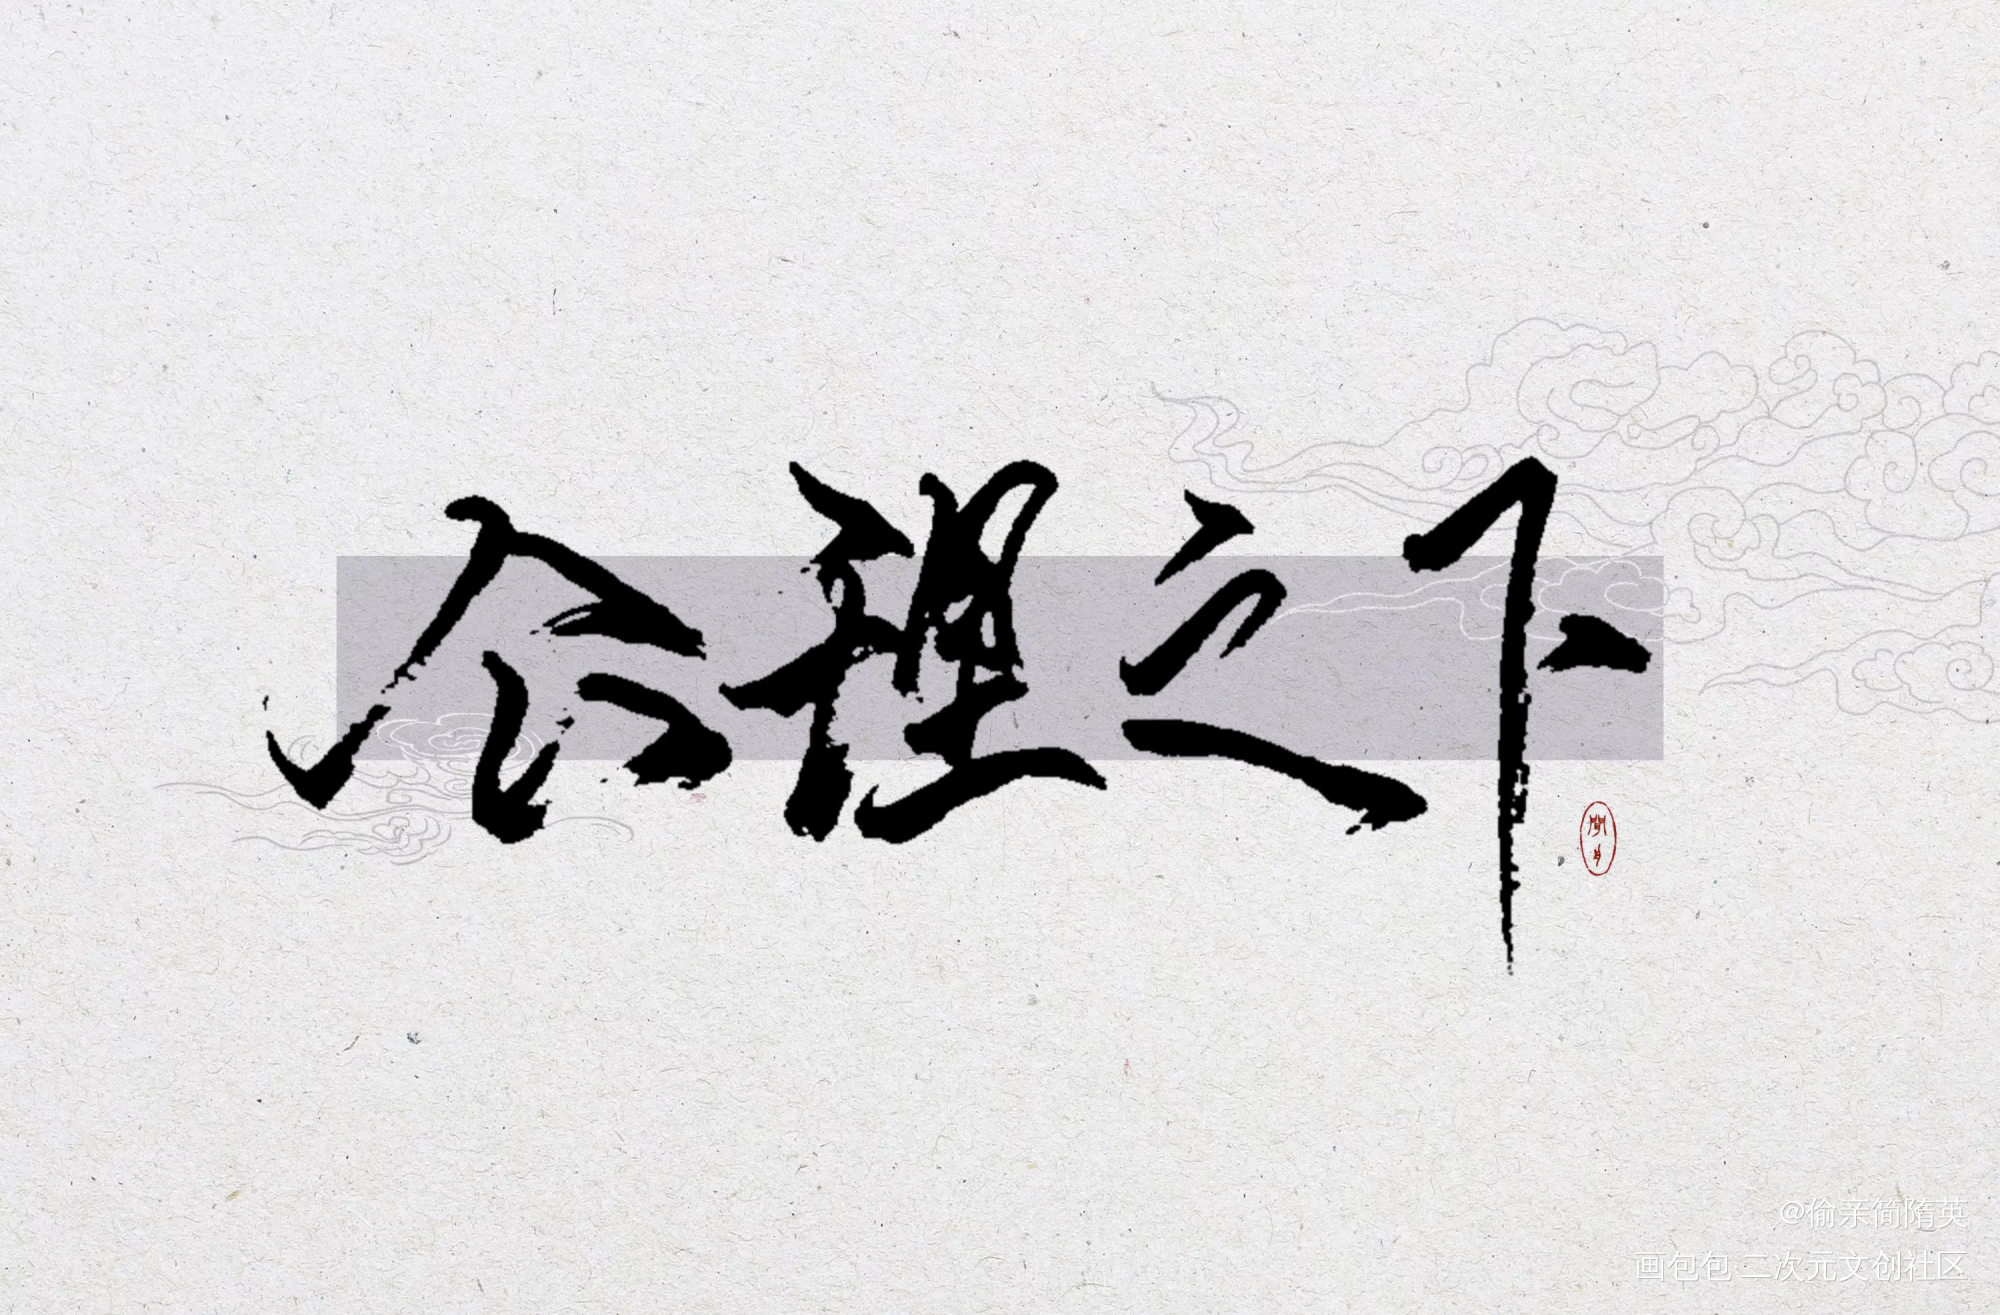 合理之下
@偷亲简隋英
画包包 二次元文创社区